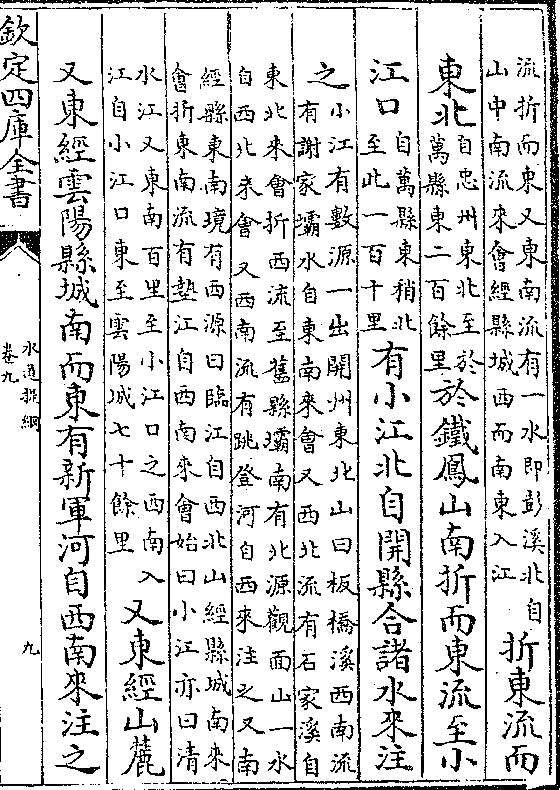 流折而東又東南流有一水即彭溪北自
山中南流來會經縣城西而南東入江
折東流而
東北
自忠州東北至於
萬縣東二百餘里
於鐵鳳山南折而東流至小
江口
自萬縣東稍北
至此一百十里
有小江北自開縣合諸水來注
之
小江有數源一出開州東北山曰板橋溪西南流
有謝家壩水自東南來會又西北流有石家溪自
東北來會折西流至舊縣壩南有北源觀面山一水
自西北來會又西南流有跳登河自西來注之又南
經縣東南境有西源曰臨江自西北山經縣城南來
會折東南流有墊江自西南來會始曰小江亦曰清
水江又東南百里至小江口之西南入
江自小江口東至雲陽城七十餘里
又東經山麓
又東經雲陽縣城南而東有新軍河自西南來注之
欽定四庫全書
水道提綱
卷九
九